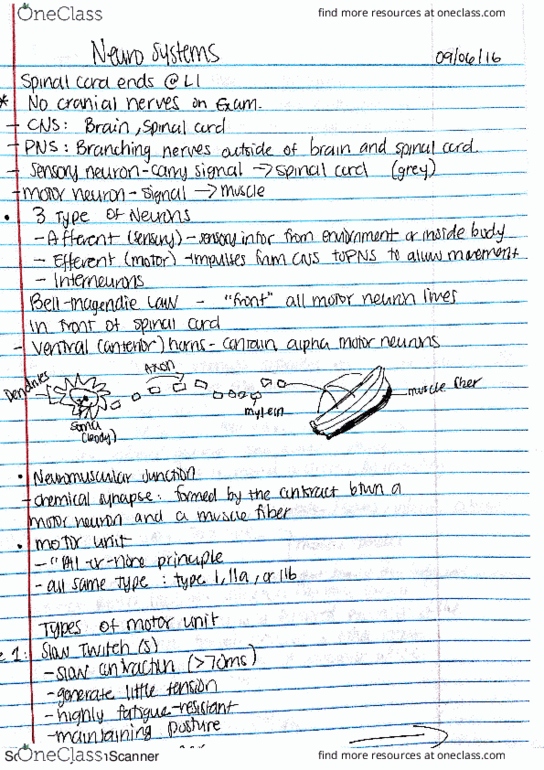 OneClass
find more resources at oneclass.com
Neuro Systems
09/06/16
Spinal cord ends @ L1
* No cranial nerves on Exam.
- CNS: Brain, Spinal cord
- PNS: Branching nerves outside of brain and spinal cord.
- Sensory neuron - carry signal → spinal cord (grey)
- motor neuron - signal → muscle
• 3 Type of Neurons
- Afferent (sensory) - sensory infor from environment or inside body
- Efferent (motor) - impulses from CNS to PNS to allow movement
- Interneurons
Bell-magendie Law - "front" all motor neuron lives
in front of spinal cord
- ventral (anterior) horns - contain alpha motor neurons
Dendrites
Axon
muscle fiber
myelin
Soma
(body)
• Neuromuscular Junction
- chemical synapse: formed by the contract btwn a
motor neuron and a muscle fiber
• motor unit
- "All-or-none principle
- all same type: type I, IIa, or IIb
Types of motor unit
1: Slow Twitch (s)
- slow contraction (>70ms)
- generate little tension
- highly fatigue-resistant
- maintaining posture
OneClass
Scanner
find more resources at oneclass.com